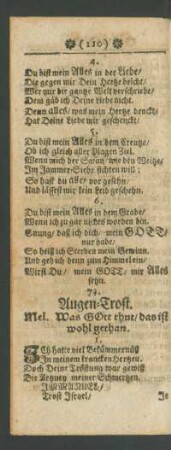 (110)
4.
Du bist mein Alles in der Liebe/
Die gegen mir Dein Hertze bricht/
Wer mir die gantze Welt verschriebe/
Dem gäb ich Deine Liebe nicht.
Denn alles/ was mein Hertze denckt/
Hat Deine Liebe mir geschenckt.
5.
Du bist mein Alles in dem Creutze/
Ob ich gleich aller Plagen Ziel.
Wenn mich der Satan/ wie den Weitze/
Im Jammer-Siebe sichten will:
So hast du alles vor gesehn/
Und lässest mir kein Leid geschehn.
6.
Du bist mein Alles in dem Grabe/
Wenn ich zu gar nichtes worden bin.
Gnung/ daß ich dich/ mein GOTT/
nur habe/
So heist ich Sterben mein Gewinn.
Und geh ich denn zum Himmel ein/
Wirst Du/ mein GOTT/ mir Alles
seyn.
74.
Augen-Trost.
Mel. Was GOtt thut/ das ist
wohl gethan.
1.
Ich hatte viel Bekümmernüß
In meinem krancken Hertzen.
Doch Deine Tröstung war gewiß
Die Artzney meiner Schmertzen.
IMMANUEL/
Trost Israel/